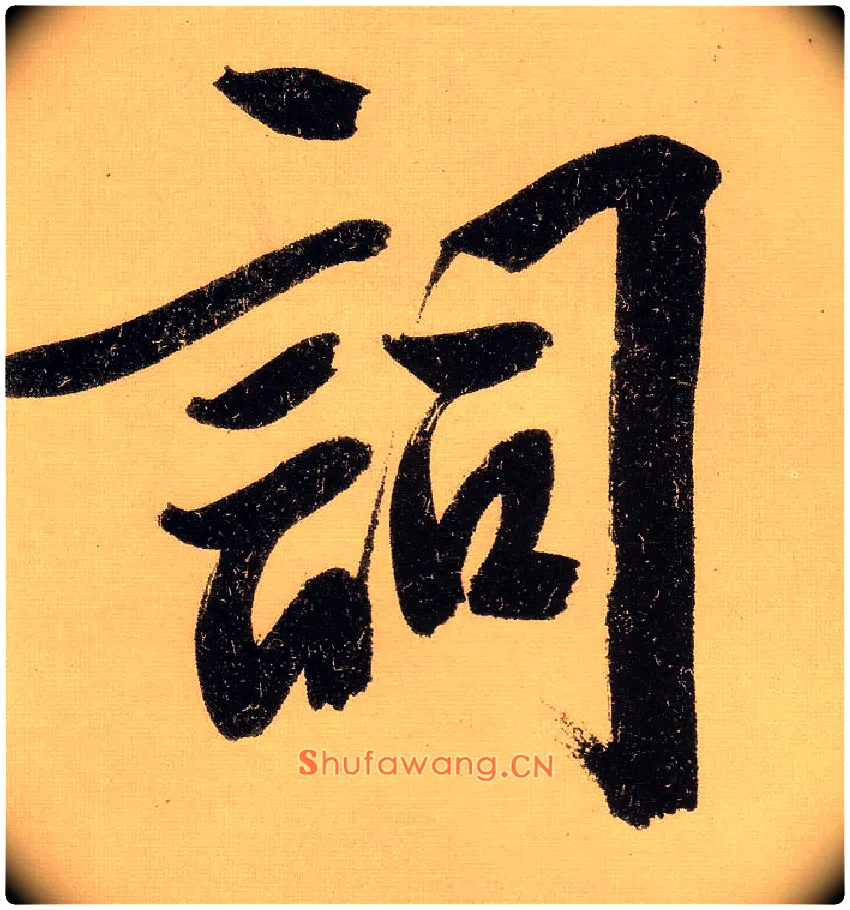 詞
Shufawang.CN